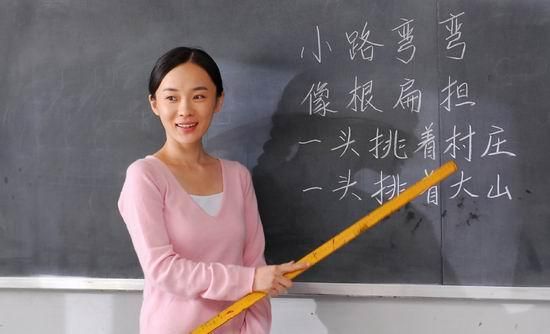 小路弯弯
像根扁担
一头挑着村庄
一头挑着大山